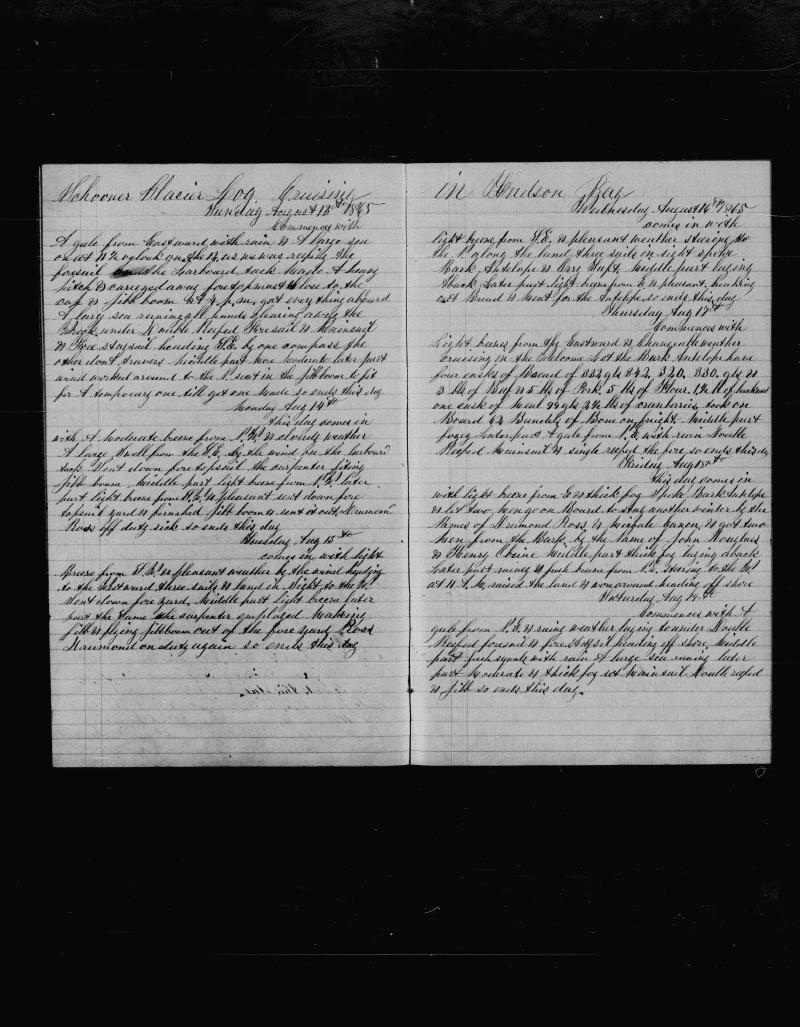 Schooner Glacier Log Cruising
Sunday August 13th 1865
Commences with
A gale from Eastward with rain & A large sea
on at 11½ oglock on the as we was reefing the
foresail the Larboard tack Made A heavy
pitch & carreyed away foretopmast close to the
cap & jibb boom at 4 p.m. got evry thing abbord
A larg sea runing all hands clearing away the
wreck under Double Reefed Foresail & Mainsail
& Fore staysail heading S.E. by one compass the
other dont Middle part More Moderate later part
wind worked around to the N. sent in the jibboom to fit
for A tempoary one till got one Made so ends this day
Monday Aug 14th
this day comes in
with A Moderate breeze from N.W. & cloudy weather
A large Swell from the S.E. by the wind on the larboard
tack Sent down fore topsail the carpenter fiting
jibb boom. Middle part light breeze from N.W. later
part light breeze from & pleasant sent down fore
topsail yard & finished jibb boom & sent it out Drumond
Ross off duty sick so ends this day
Tuesday Aug 15th
comes in with light
Breeze from & pleasant weather by the wind heading
to the Westward three sails & land in Sight to the W.
Sent down fore yard. Middle part light breeze later
part the Same the carpenter employed Making
jibb & flying jibboom out of the fore yard Ross
Drumond on duty again so ends this day
in Hudson Bay
Wednesday August 16th 1865
comes in with
light breeze from S.E. & pleasant weather steering to
the N. along the land three sails in sight spoke
Bark Antelope & Orry Taft. Middle part laying
aback Later part light breeze from E & pleasant, breaking
out Bread & Meat for the Antelope so ends this day
Thursday Aug 17th
Commences with
Light breeze from the Eastward & Changeable weather
Cruising in the Welcome Let the Bark Antelope have
four casks of Bread of 332 gls 342, 320, 330. gls &
3 bls of Beef & 5 bls of Pork. 5 bls of Flour.
one cask of Meal 99 gls of cranberries took on
Board 42 Bundles of Bone on freight. Middle part
foggy Later part A gale from N.E. with rain Double
Reefed Mainsail & single reefed the fore so ends this day
Friday Aug 18th
this day comes in
with light breeze from E & thick fog Spoke Bark Antelope
& let two Men go on Board to stay another winter by the
Names of Drumond Ross & Canon, & got two
Men from the Bark by the Name of John Douglass
& Henry Middle part thick fog laying aback
Later part rainey & fresh breese from N.E. Steering to the W.
at 11 A.M. raised the land & wore around heading off shore
Saturday Aug 19th
Commences with A
gale from N.E. & rainy weather laying to under Double
Reefed foresail & fore Staysail heading off shore. Middle
part fresh squals with rain A large sea runing later
part Moderate & thick fog set Mainsail Double reefed
& jibb so ends this day.